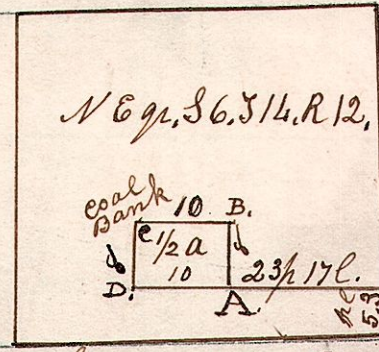 N E qr, S 6, T 14, R 12,
coal
Bank
10 B.
C 1/2 a 8
8 10 23p 17l.
D. A.
5.3